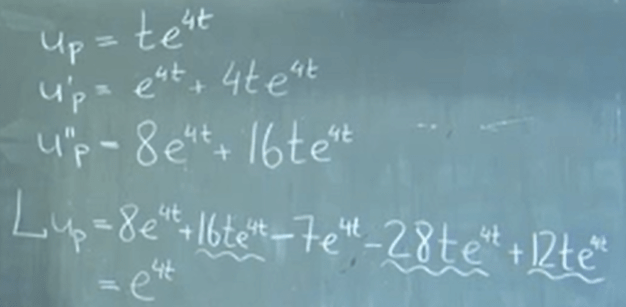 u_p = te^{4t}
u'_p = e^{4t} + 4te^{4t}
u''_p = 8e^{4t} + 16te^{4t}
Lu_p = 8e^{4t} + 16te^{4t} - 7e^{4t} - 28te^{4t} + 12te^{4t}
= e^{4t}